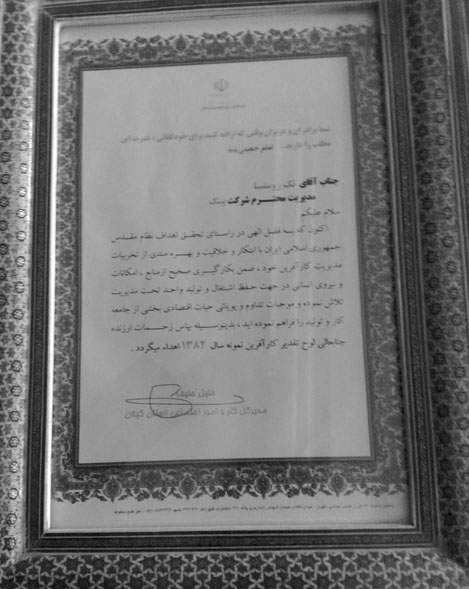 شما برادران و دربران وقتی که اراده کنند برای خودکفائی ، قدرت این
مطلب را دارید.. امام خمینی
جناب آقای تک روستا
مدیریت محترم شرکت پینک
سلام علیکم
اکنون که به فضل الهی در راستای تحقق اهداف نظام مقدس
جمهوری اسلامی ایران با ابتکار و خلاقیت و بهره مندی از تجربیات
مدیریت کارآفرین خود ، ضمن بکارگیری صحیح از منابع ، امکانات
و نیروی انسانی در جهت حفظ اشتغال و تولید واحد تحت مدیریت
تلاش نموده و موجبات تداوم و پویائی حیات اقتصادی بخشی از جامعه
کار و تولید را فراهم نموده اید ، بدینوسیله بپاس زحمات ارزنده
جنابعالی لوح تقدیر کارآفرین نمونه سال ۱۳۸۲ اهداء میگردد .
خلیل
مدیرکل کار و امور اجتماعی استان گیلان